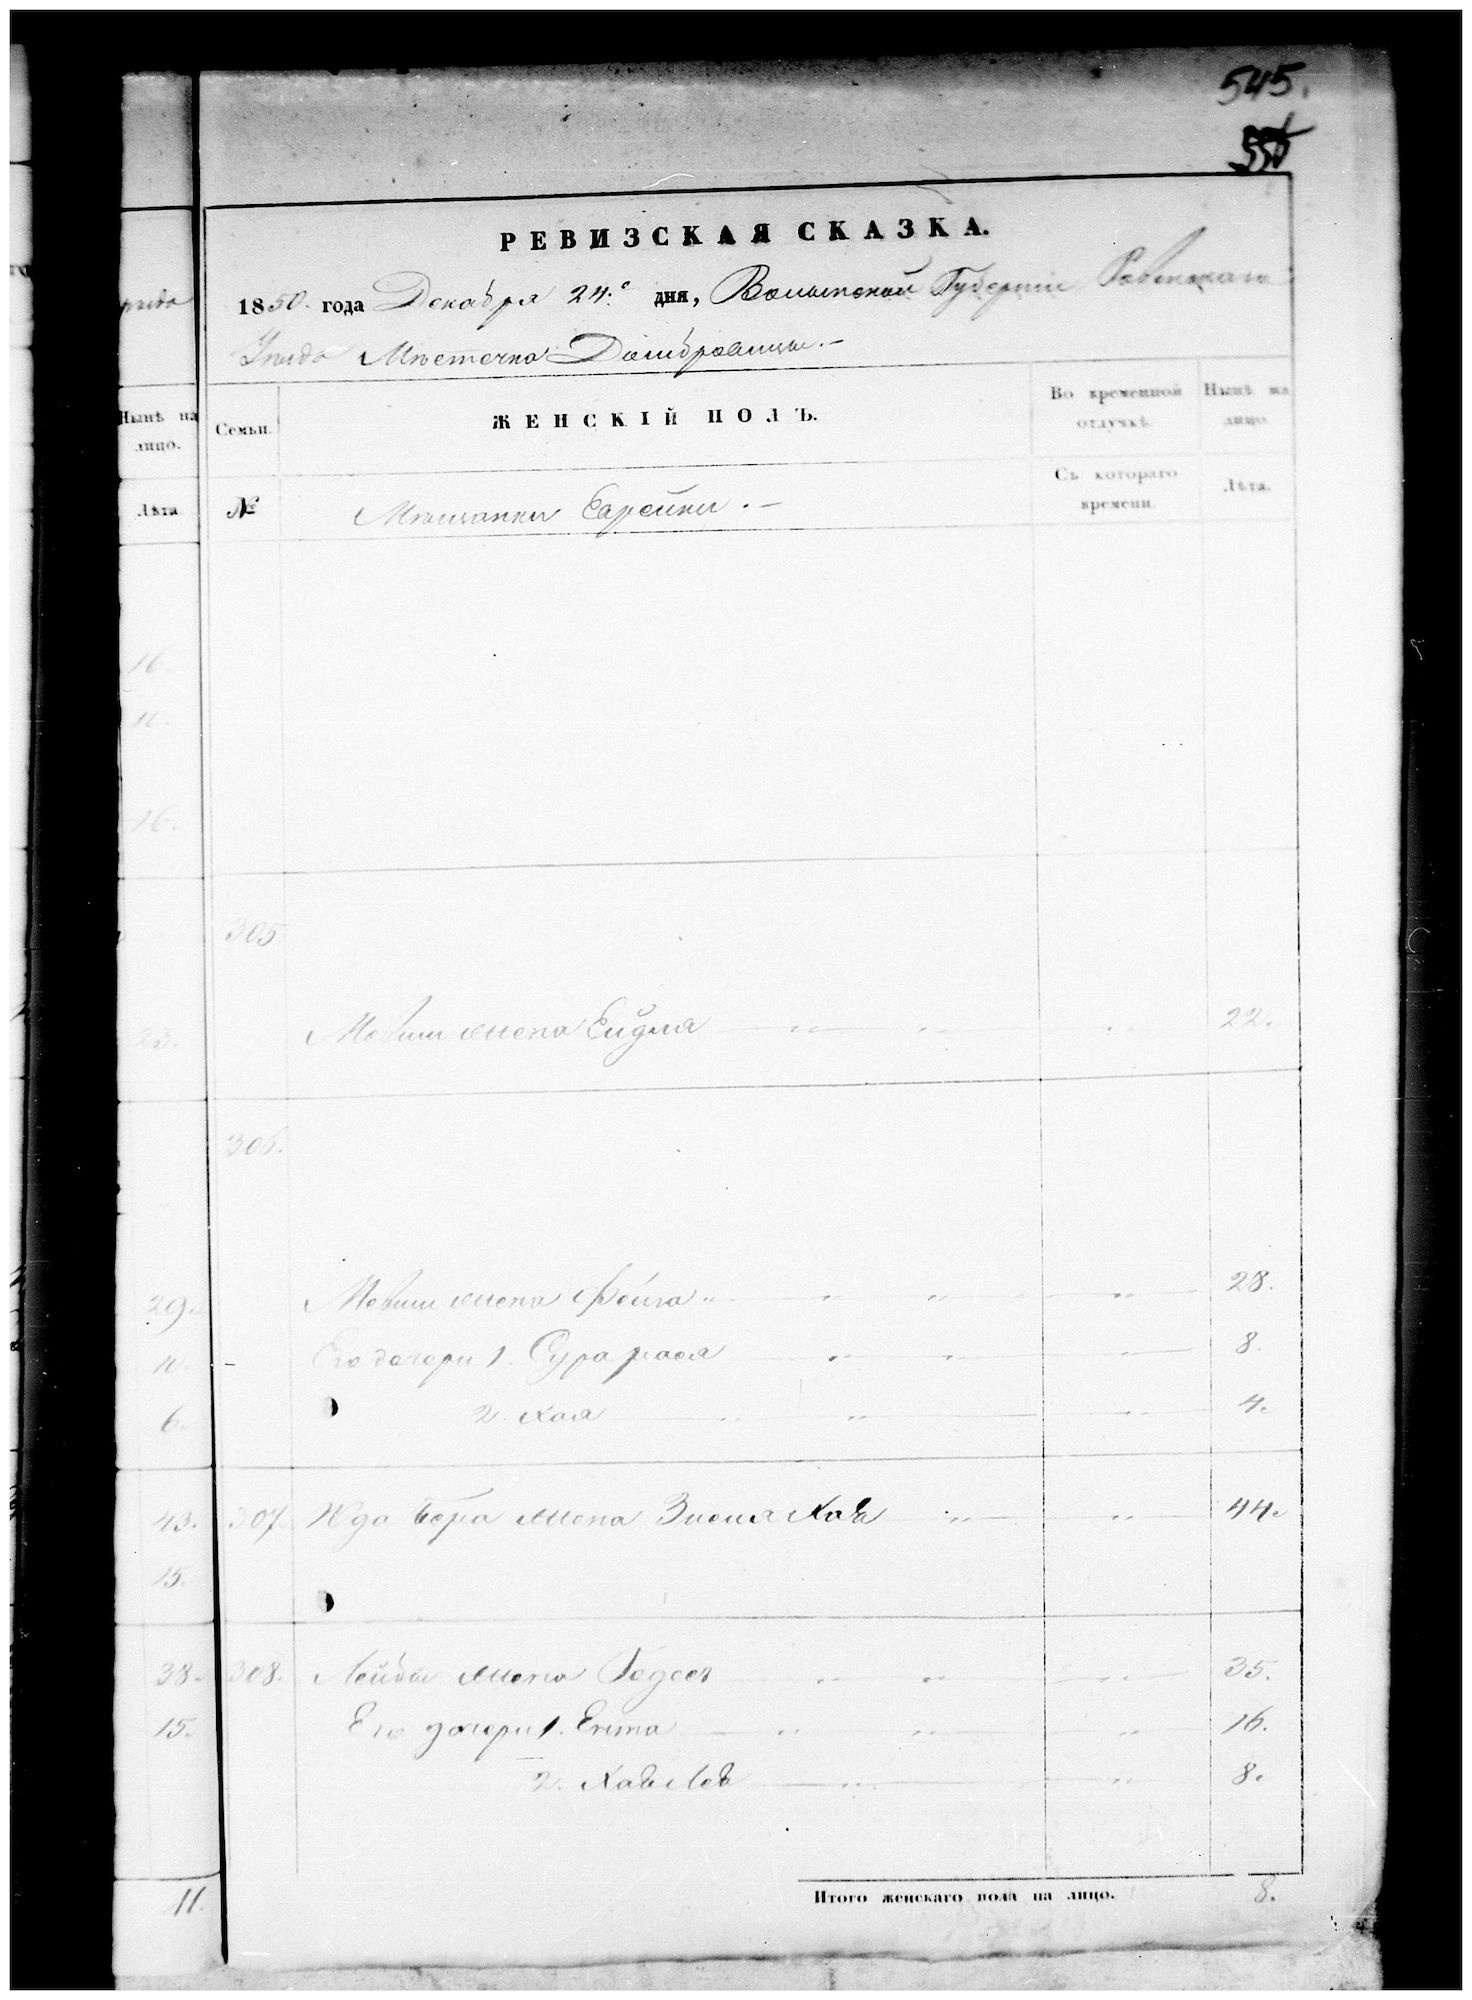 545.
РЕВИЗСКАЯ СКАЗКА.
1850. года Декабря 24. дня, Волынской Губерніи Ровенскаго
Уѣзда Мѣстечка Домбровицы.-
Нынѣ на лицо.
Семьи.
ЖЕНСКІЙ ПОЛЪ.
Во временной отлучкѣ.
Нынѣ на лицо.
Лѣта
№
Мѣщанки Евреики.-
Съ котораго времени.
Лѣта.
16.
10.
16.
305
23.
Мовши жена Ейдля 22.
306.
29. Мовши жена Фейга 28.
10. Его дочери 1. Сура 8.
6. 2. Хая 4.
43. 307 жена Хая 44.
15.
38. 308. Лейбы жена Годес 35.
15. Его дочери 1. Ента 16.
2. 8.
11.
Итого женскаго пола на лицо. 8.